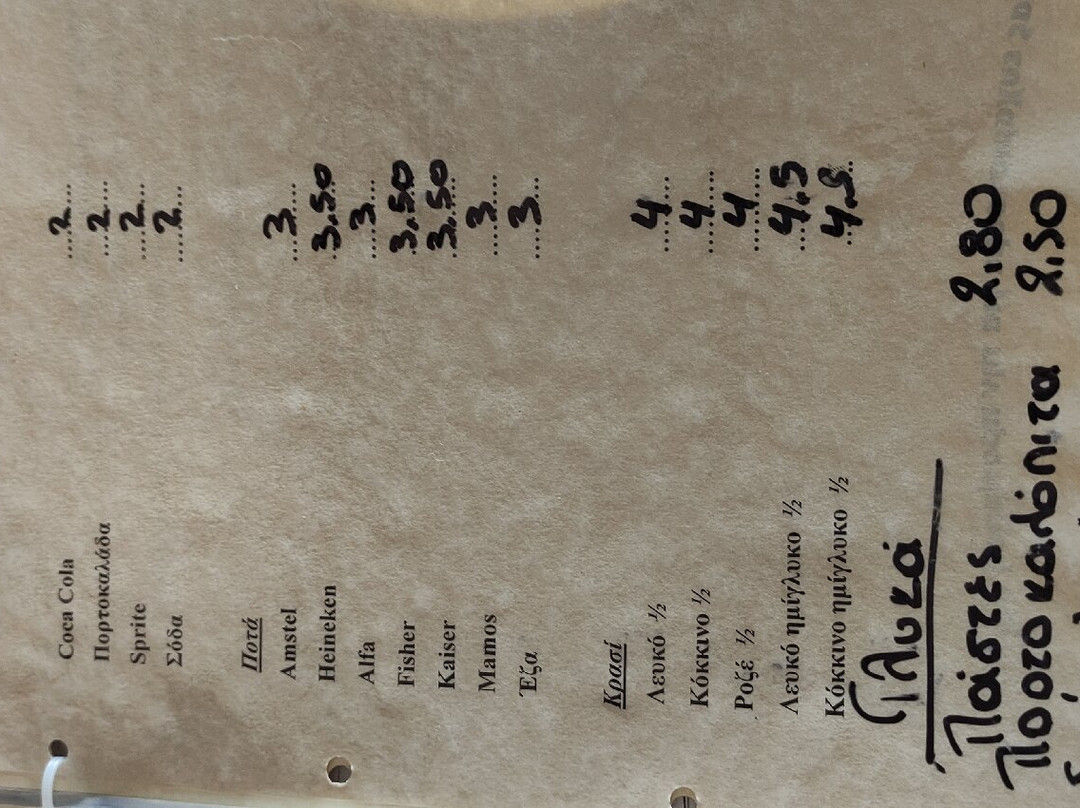 Coca Cola ....2....
Πορτοκαλάδα ....2....
Sprite ....2....
Σόδα ....2....
Ποτά
Amstel ....3....
Heineken ..3.50
Alfa ....3....
Fisher ..3.50
Kaiser ..3.50..
Mamos ....3....
Έζα ....3....
Κρασί
Λευκό ½ ....4....
Κόκκινο ½ ....4....
Ροζέ ½ ....4....
Λευκό ημίγλυκο ½ ...4.5
Κόκκινο ημίγλυκο ½ ..4.5..
Γλυκά
Πάστες 2,80
Πορτοκαλόπιτα 2,50